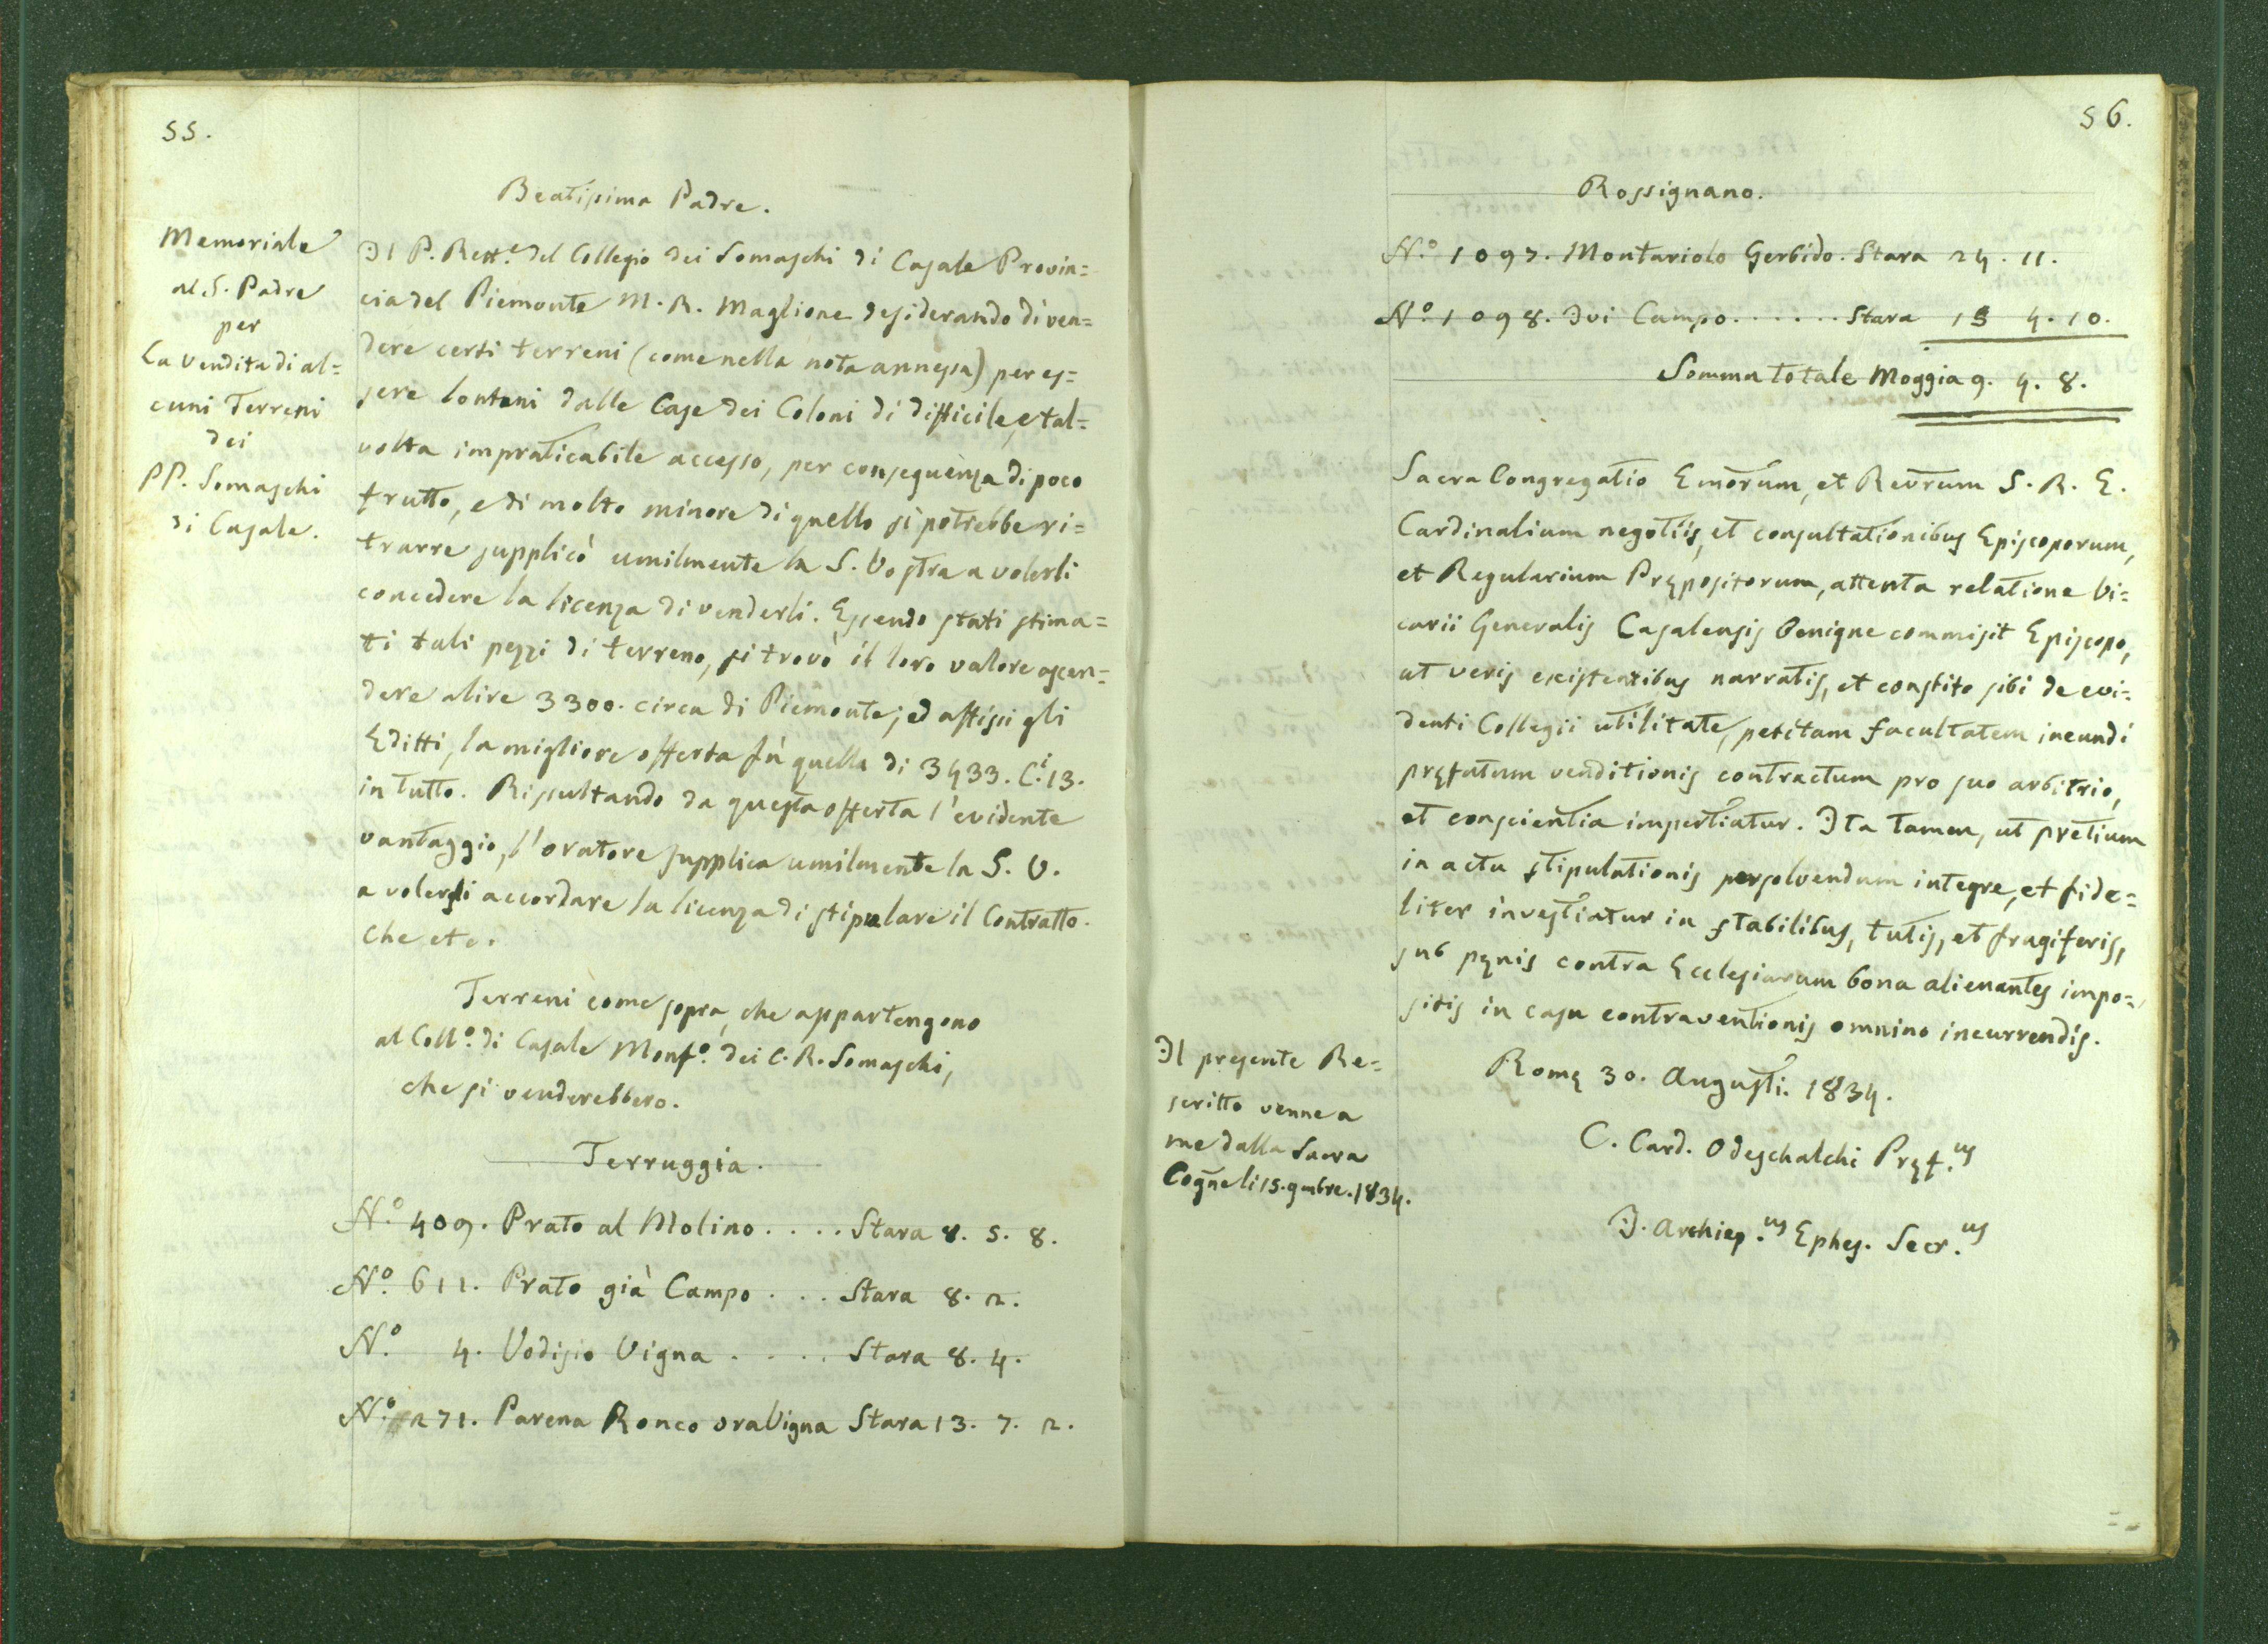 55.
Beatissimo Padre.
Memoriale
al S. Padre
per
La vendita di al=
cuni Terreni
dei
PP. Somaschi
di Casale.
Il P. Rett.e del Collegio dei Somaschi di Casale Provin=
cia del Piemonte M. R. Maglione desiderando di ven=
dere certi terreni (come nella nota annessa) per es=
sere lontani dalle Case dei Coloni di difficile, e tal=
volta impraticabile accesso, per conseguenza di poco
frutto, e di molto minore di quello si potrebbe ri=
trarre supplicò umilmente la S. Vostra a volerli
concedere la licenza di venderli. Essendo stati stima=
ti tali pezzi di terreno, si trovò il loro valore ascen=
dere a lire 3300. circa di Piemonte; ed affissi gli
Editti, la migliore offerta fù quella di 3433. C.i 13.
in tutto. Risultando da questa offerta l'evidente
vantaggio, l'oratore supplica umilmente la S. V.
a volersi accordare la licenza di stipulare il Contratto.
Che etc.
Terreni come sopra, che appartengono
al Coll.o di Casale Monf.o dei C. R. Somaschi,
che si venderebbero.
Terruggia.
N.o 409. Prato al Molino .... Stara 8. 5. 8.
N.o 611. Prato già Campo ... Stara 8. 2.
N.o 4. Vodisio Vigna .... Stara 8. 4.
N.o 271. Parena Ronco ora Vigna Stara 13. 7. 2.
56.
Rossignano.
N.o 1097. Montariolo Gerbido. Stara 24. 11.
N.o 1098. Ivi Campo ...... Stara 15 4. 10.
Somma totale Moggia 9. 4. 8.
Sacra Congregatio Emorum, et Revrum S. R. E.
Cardinalium negotiis, et consultationibus Episcoporum,
et Regularium Pręposítorum, attenta relatione Vi=
carii Generalis Casalensis benigne commisit Episcopo,
ut veris existentibus narratis, et constito sibi de evi=
denti Collegii utilitate, petitam facultatem ineundi
pręfatum venditionis contractum pro suo arbitrio,
et conscientia impertiatur. Ita tamen, ut pretium
in actu stipulationis persolvendum integre, et fide=
liter investiatur in stabilibus, tutis, et frugiferis,
sub pęnis contra Ecclesiarum bona alienantes impo=
sitis in casu contraventionis omnino incurrendis.
Romę 30. Augusti. 1834.
C. Card. Odeschalchi Pręf.us
I. Archiep.us Ephes. Secr.us
Il presente Re=
scritto venne a
me dalla Sacra
Cogñe li 15. 9mbre. 1834.